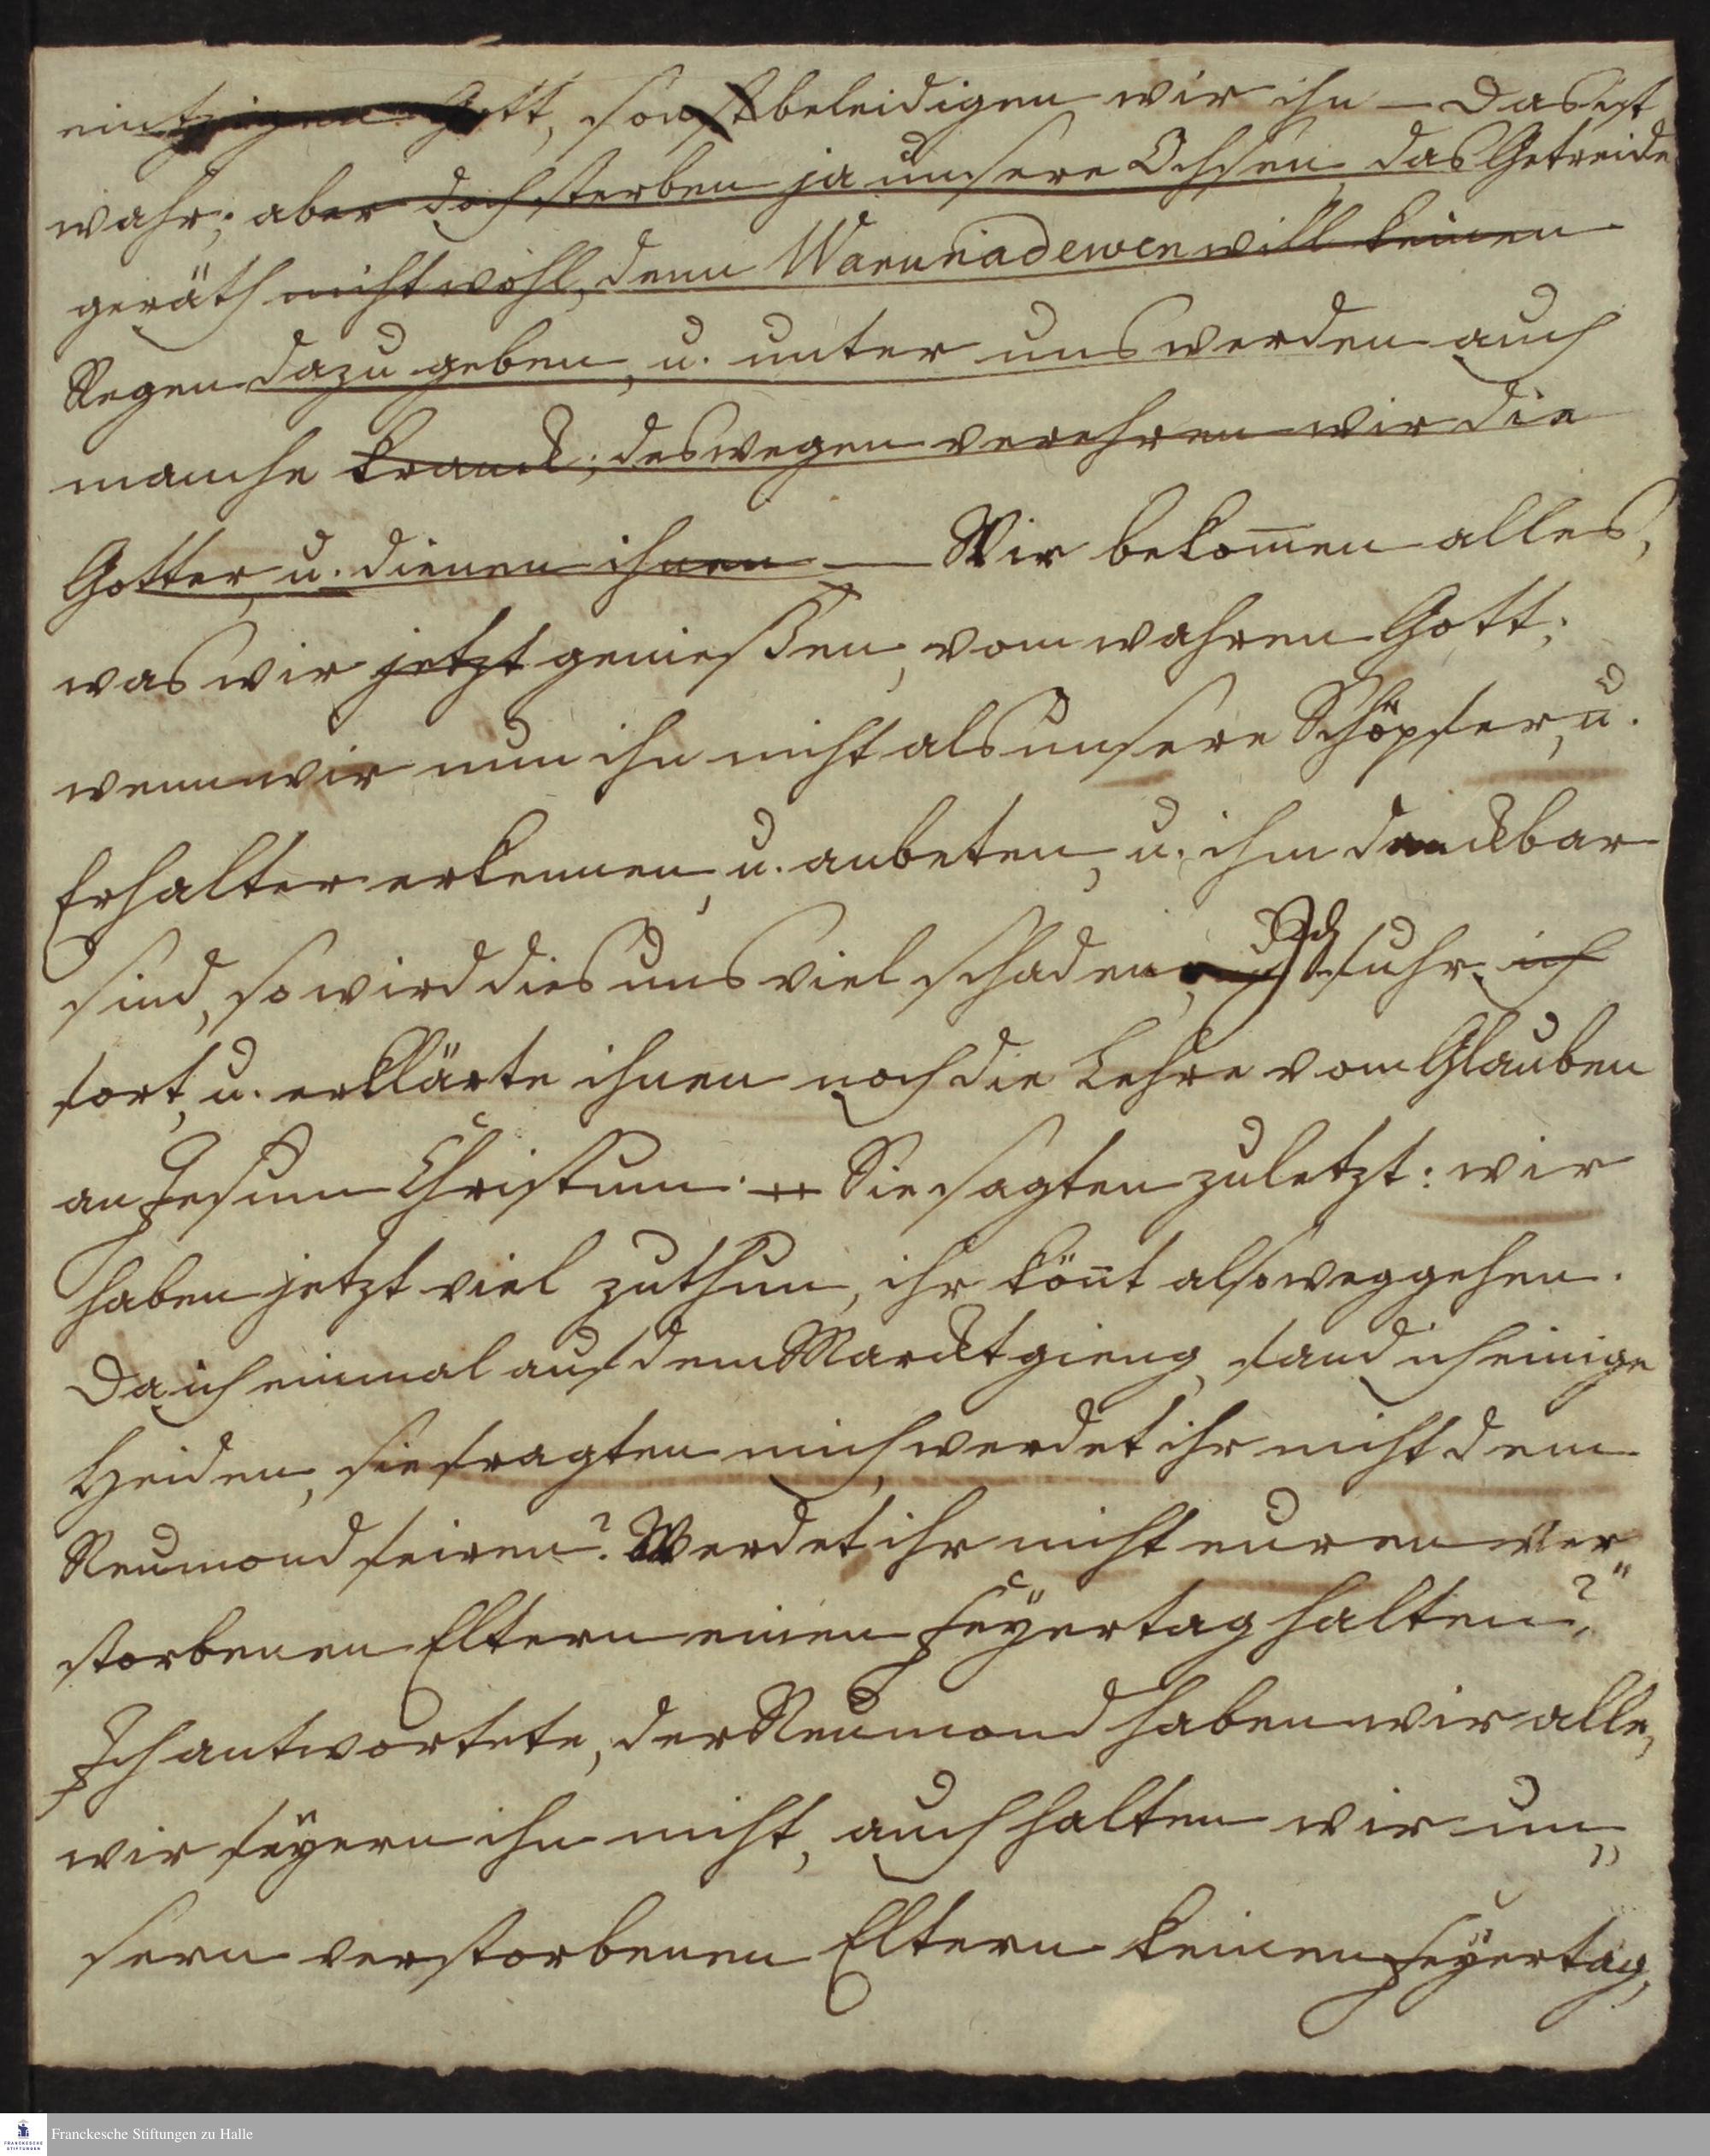 eintzigen Gott, sonst beleidigen wir ihn – Das ist
wahr; aber doch sterben ja unsere Ochsen, das Getreide
geräth nicht wohl, denn Warunadewen will keinen
Regen dazu geben, u. unter uns werden auch
manche kranck; deswegen verehren wir die
Götter, u. dienen ihnen — Wir bekom̄en alles,
was wir jetzt genießen, vom wahren Gott;
wenn wir nun ihn nicht als unsere Schöpfer, u.
Erhalter erkennen, u. anbeten, u. ihm danckbar
sind, so wird dies uns viel schaden, Ich fuhr ich
fort, u. erklärte ihnen noch die Lehre vom Glauben
an Jesum Christum. Sie sagten zuletzt: wir
haben jetzt viel zuthun, ihr kön̄t also weggehen.
Da ich einmal auf dem Marckt gieng, fand ich einige
Heiden, sie fragten mich, werdet ihr nicht dem
Neumond feiren? Werdet ihr nicht euren ver„
storbenen Eltern einen Feyertag halten?
Ich antwortete, der Neumond haben wir alle,
wir feyern ihn nicht, auch halten wir un„
sern verstorbenen Eltern keinen Feyertag,
Franckesche Stiftungen zu Halle
FRANCKESCHE STIFTUNGEN